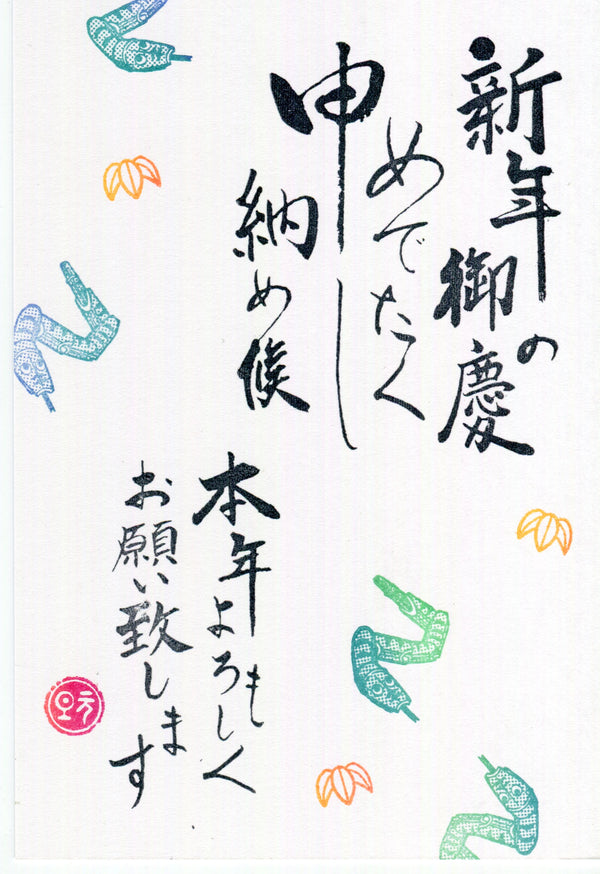 新年の
御慶
めでたく
申し
納め候
本年も
よろしく
お願い致します